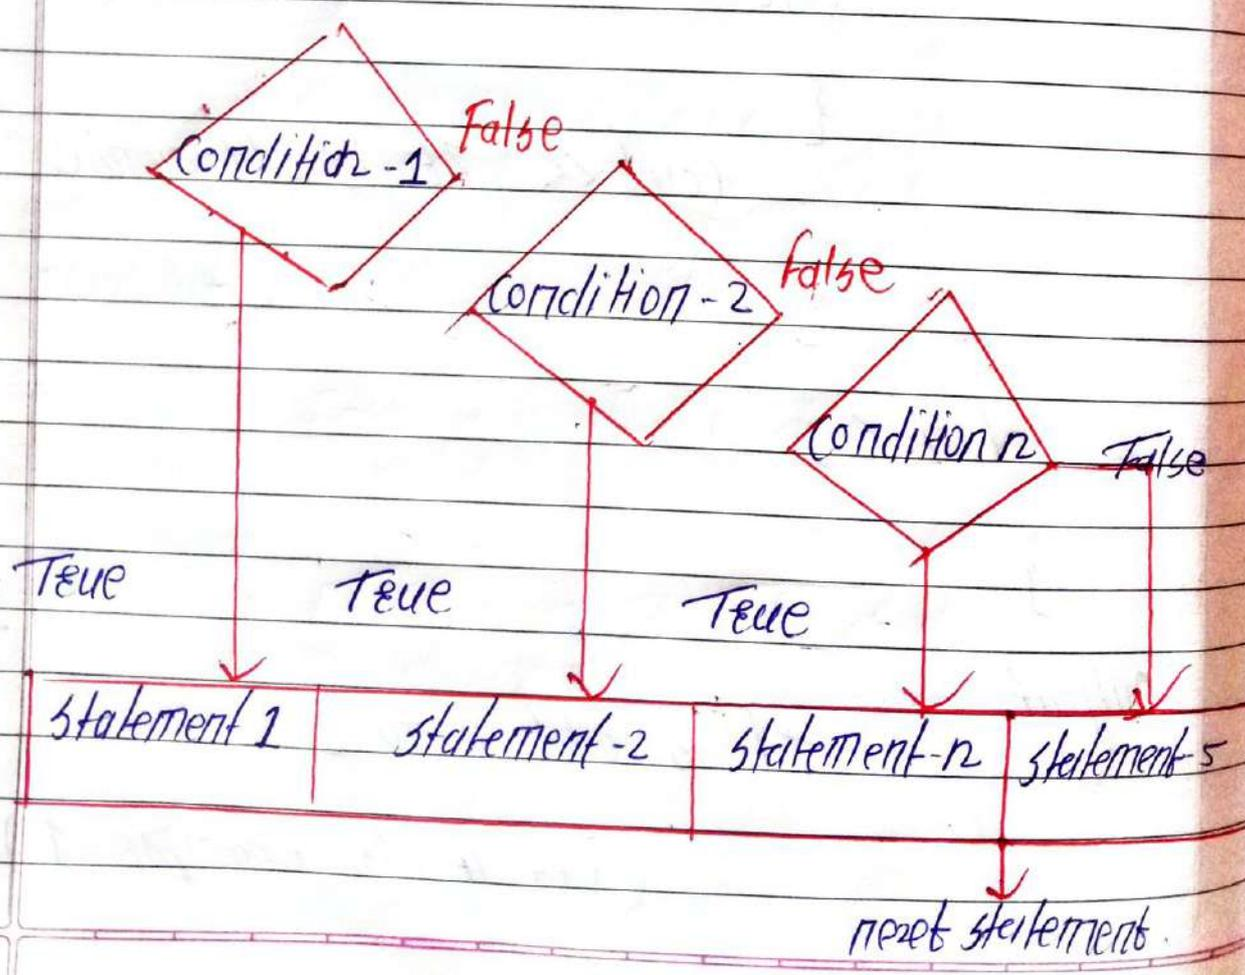 Condition-1
False
Condition-2
False
Condition n
False
True
True
True
Statement 1
Statement-2
Statement-n
Statement-5
next statement